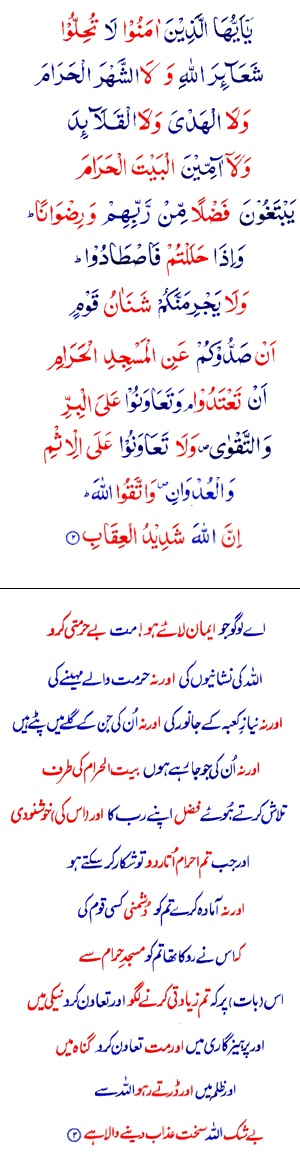 يٰۤاَيُّهَا الَّذِيْنَ اٰمَنُوْا لَا تُحِلُّوْا
شَعَآئِرَ اللّٰهِ وَ لَا الشَّهْرَ الْحَرَامَ
وَلَا الْهَدْىَ وَلَا الْقَلَآئِدَ
وَلَاۤ آمِّيْنَ الْبَيْتَ الْحَرَامَ
يَبْتَغُوْنَ فَضْلًا مِّنْ رَّبِّهِمْ وَرِضْوَانًاؕ
وَاِذَا حَلَلْتُمْ فَاصْطَادُوْاؕ
وَلَا يَجْرِمَنَّكُمْ شَنَاٰنُ قَوْمٍ
اَنْ صَدُّوْكُمْ عَنِ الْمَسْجِدِ الْحَرَامِ
اَنْ تَعْتَدُوْاۘ وَتَعَاوَنُوْا عَلَى الْبِرِّ
وَالتَّقْوٰىۖ وَلَا تَعَاوَنُوْا عَلَى الْاِثْمِ
وَالْعُدْوَانِۖ وَاتَّقُوا اللّٰهَؕ
اِنَّ اللّٰهَ شَدِيْدُ الْعِقَابِ ﴿۲﴾
اے لوگو جو ایمان لائے ہو! مت بے حرمتی کرو
اللہ کی نشانیوں کی اور نہ حرمت والے مہینے کی
اور نہ نیازِ کعبہ کے جانور کی اور نہ اُن کی جن کے گلے میں پٹے ہیں
اور نہ اُن کی جو جا رہے ہوں بیت الحرام کی طرف
تلاش کرتے ہُوئے فضل اپنے رب کا اور (اس کی) خوشنودی
اور جب تم احرام اُتار دو تو شکار کر سکتے ہو
اور نہ آمادہ کرے تم کو دشمنی کسی قوم کی
کہ اس نے روکا تھا تم کو مسجدِ حرام سے
اس (بات) پر کہ تم زیادتی کرنے لگو اور تعاون کرو نیکی میں
اور پرہیزگاری میں اور مت تعاون کرو گناہ میں
اور ظلم میں اور ڈرتے رہو اللہ سے
بے شک اللہ سخت عذاب دینے والا ہے ﴿۲﴾